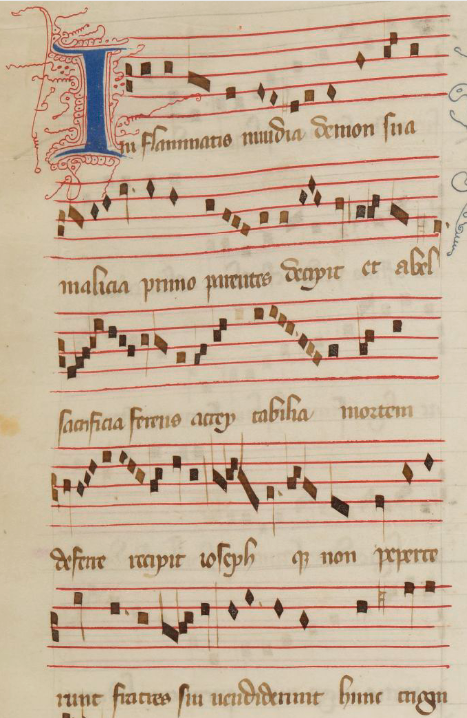 In flammatis inuidia demon sua
malicia primo parentes decipit et abel
sacrificia ferens accep tabilia mortem
defert recipit ioseph non peperce
runt fratres sui uendiderunt hunc